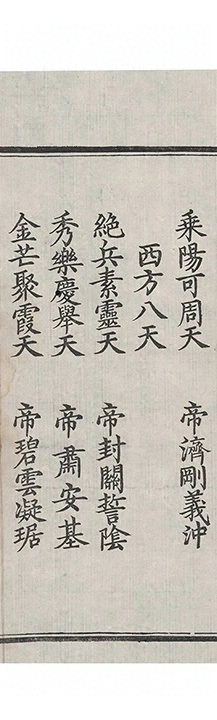 乘陽可周天　帝濟剛義沖
西方八天
絕兵素靈天　帝封關誓陰
秀樂慶舉天　帝肅安基
金芒聚霞天　帝碧雲凝琚